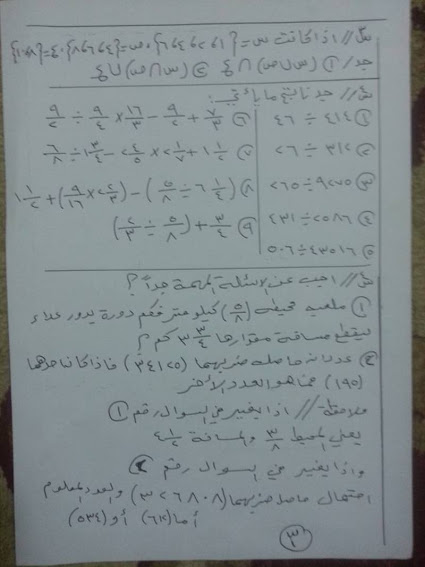 س١// اذا كانت س={١،٢،٣،٤،٦} ، ص={٢،٤،٦،٨} ، ع={١،٨}
جد/ ① (س∪ص)∩ع ② (س∩ص)∪ع
س// جد ناتج ما يأتي :
① ٤١٤ ÷ ٤٦
② ٣١٢ ÷ ٢٦
③ ٩٢٧٥ ÷ ٢٦٥
④ ٢٥٨٦ ÷ ٤٣١
⑤ ٤٣٥١٦ ÷ ٥٠٦
⑥ ٧/٣ + ٢/٩ − ١٦/٣ × ٩/٤ ÷ ٩/٢
٨) (١/٤ ٦ ÷ ٥/٨) − (٢/٣ ٢ × ٩/١٦) + ١/٢ ١
٩) ٣/٤ + (٥/٨ ÷ ٢/٣)
س// اجب عن الاسئلة المهمة جداً ؟
① ملعب محيطه (٥/٨) كيلو متر فكم دورة يدور علاء
ليقطع مسافة مقدارها ٣/٤ ٣ كم ؟
② عددان حاصل ضربهما (٣٤١٢٥) فاذا كان احدهما
(١٩٥) فما هو العدد الآخر
ملاحظة // اذا يغير في السؤال رقم ①
يعني المحيط ٣/٨ والمسافة ١/٢ ٤
واذا يغير في السؤال رقم ②
احتمال حاصل ضربهما (٣٢٦٨٠٨) والعدد المعلوم
أما (٦١٢) أو (٥٣٤)
٣